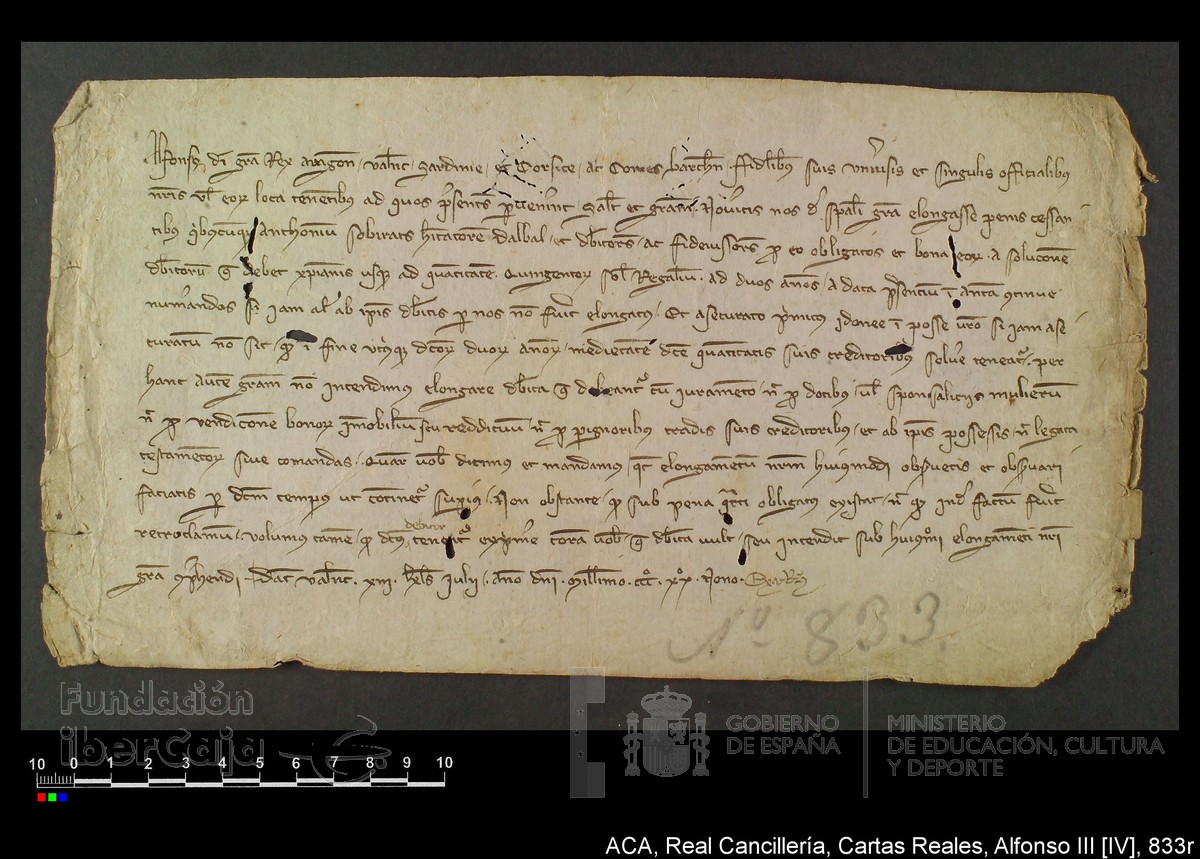 Alfonsus dei gra Rex Aragon Valnc Sardinie et Corsice ac Comes barchn fidelibus suis universis et singulis officialibus
nris vel eor loca tenentibus ad quos presentes pervenerint Salt et gram Noveritis nos de speciali gra elongasse penis cessan
tibus quibuscumque Anthonium sobirats hitatorem dalbal et debitores ac fideiussores pro eo obligatos et bona eor a solucone
debitoru que debet xpianis usque ad quantitatem Quingentor sol Regalium ad duos annos a data presentium in antea continue
numerandos si iam al ab ipsis debitis per nos non fuerit elongatus Et asecurato primitus idonee in posse vestro si iam ase
curatum non sit quod in fine utriusque dictor duor annor medietatem dicte quantitatis suis creditoribus solvere teneatur per
hanc autem gram non intendimus elongare debita que debeantur cum iuramento nec pro dotibus vel sponsaliciis mulierum
nec pro vendicone bonor immobilium seu reddituum nec pro pignoribus traditis suis creditoribus et ab ipsis possessis nec legata
testamentor sive comandas Quare vobis dicimus et mandamus quatenus elongamentum nrm huiusmodi observetis et observari
faciatis per dictum tempus ut continetur superius Non obstante quod sub pena quarti obligatus existat nec quod inde factum fuerit
retroclamum volumus tamen quod dictus debitor teneatur exprimere coram vobis que debita vult seu intendit sub huiusmodi elongamenti nri
gra comprehendi Dat Valnc xiii kls Iulii Anno dni Millimo ccc xx nono
Nº 833
Fundación
iberCaja
GOBIERNO
DE ESPAÑA
MINISTERIO
DE EDUCACIÓN, CULTURA
Y DEPORTE
10 0 1 2 3 4 5 6 7 8 9 10
ACA, Real Cancillería, Cartas Reales, Alfonso III [IV], 833r